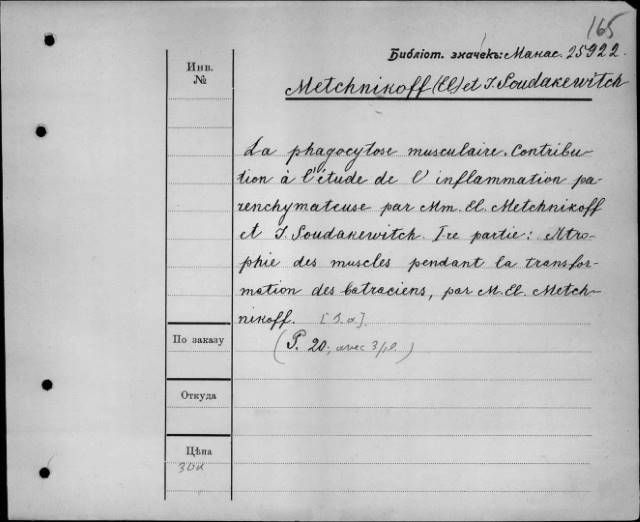 165
Библіот. значекъ: Манас. 25922.
Инв.
№
Metchnikoff (El) et J. Soudakewitch
La phagocytose musculaire. Contribu-
tion à l'étude de l'inflammation pa-
renchymateuse par Mm. El. Metchnikoff
et J. Soudakewitch. Ire partie: Atro-
phie des muscles pendant la transfor-
mation des batraciens, par M. El. Metch-
nikoff. [S. a].
(P. 20; avec 3 pl.)
По заказу
Откуда
Цѣна
30к